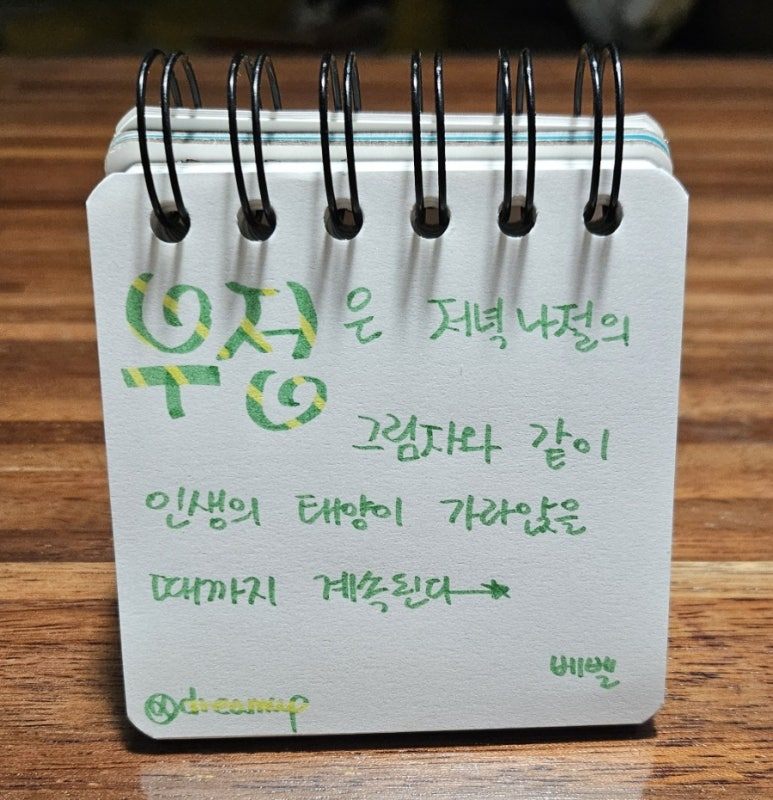 우정은 저녁나절의
그림자와 같이
인생의 태양이 가라앉을
때까지 계속된다
베벨
@dreamup